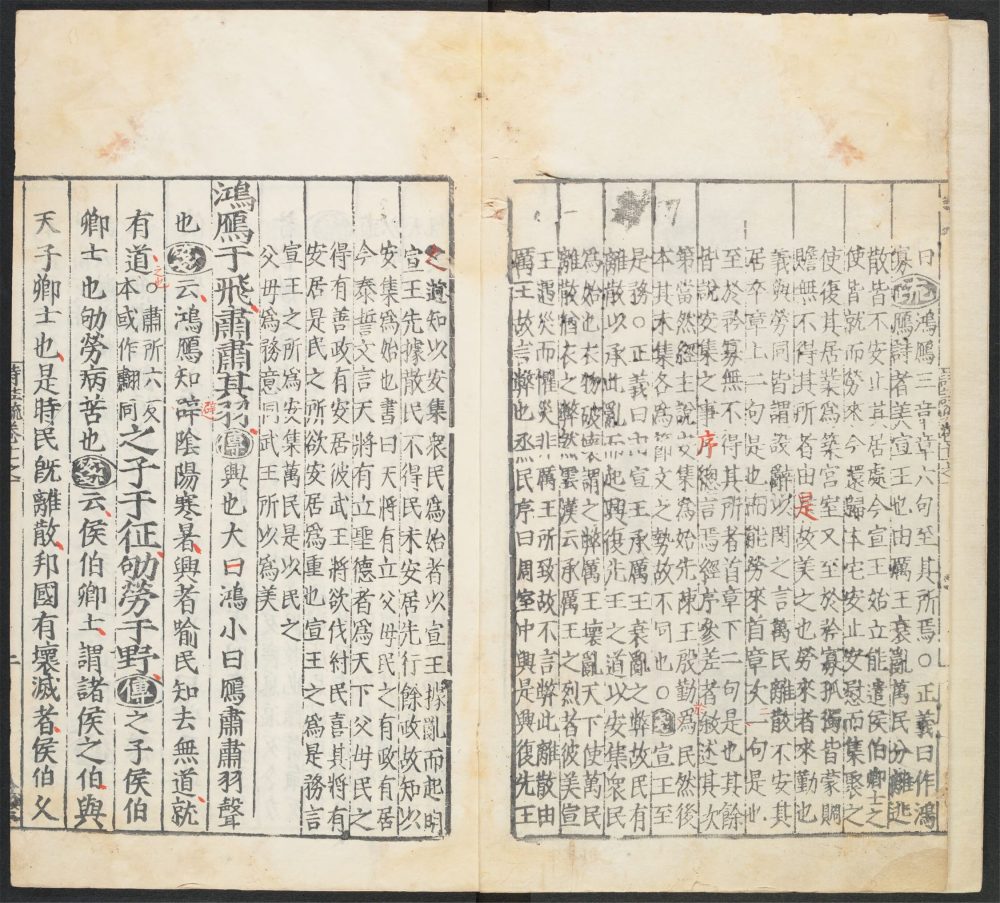 曰疏鴻鴈三章章六句至其所焉○正義曰作鴻
寡鴈詩者美宣王也由厲王衰亂萬民分離逃
散皆不安止其居處今宣王始立能遣侯伯卿士之
使皆就而勞來今還歸本宅安止安慰而集聚之
使復其居業為築宮室又至於矜寡孤獨皆蒙賙
贍無不得其所者由是故美之也勞來者來勤也
義與勞同皆謂設辭以閔之言萬民離散不安其
居卒章上二句是也而能勞來首章次二句是也
至於矜寡無不得其所者首章下二句是也其餘
皆說安集之事序總言焉經序參差者敘述其次
第當然經主說安集為始先陳王殷勤為民然後
本其未集各為節文之勢故不同也○箋宣王至
是務○正義曰宣王承厲王衰亂之弊民有
離散以承此亂而起興復先王之道以安集眾民
為始也衣物破壞謂之弊厲王壞亂天下使萬民
離散猶衣之弊然雲漢云承厲王之烈者彼美宣
王遇災而懼災非厲王所致故不言弊此離散由
厲王故言弊也烝民序曰周室中興是興復先王
之道知以安集眾民為始者以宣王據亂而起明
宣王先據散民不得民未安居先行餘政故知以
安集為始也書曰天將有立父母民之有政有居
今泰誓文言天將有立聖德者為天下父母民之
得有善政有安居彼武王將欲伐紂民喜其將有
安居是民之所欲安居為重也宣王之為是務言
宣王之所為安集萬民是以民之
父母為務意同武王所以為美
鴻鴈于飛肅肅其羽傳興也大曰鴻小曰鴈肅肅羽聲
也箋云鴻鴈知辟陰陽寒暑興者喻民知去無道就
有道○肅所六反本或作翿同之子于征劬勞于野傳之子侯伯
卿士也劬勞病苦也箋云侯伯卿士謂諸侯之伯與
天子卿士也是時民既離散邦國有壞滅者侯伯久